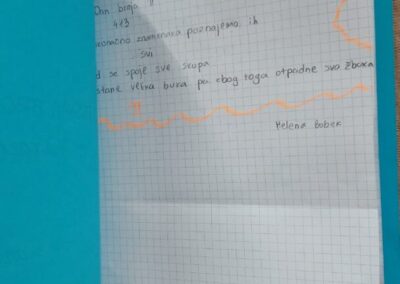 Dan broja
413
zanimanja poznajemo ih
svi
d se spoje sve svopa
stane velika buka pa zbog toga otpadne sva žbuka
Helena Bobek